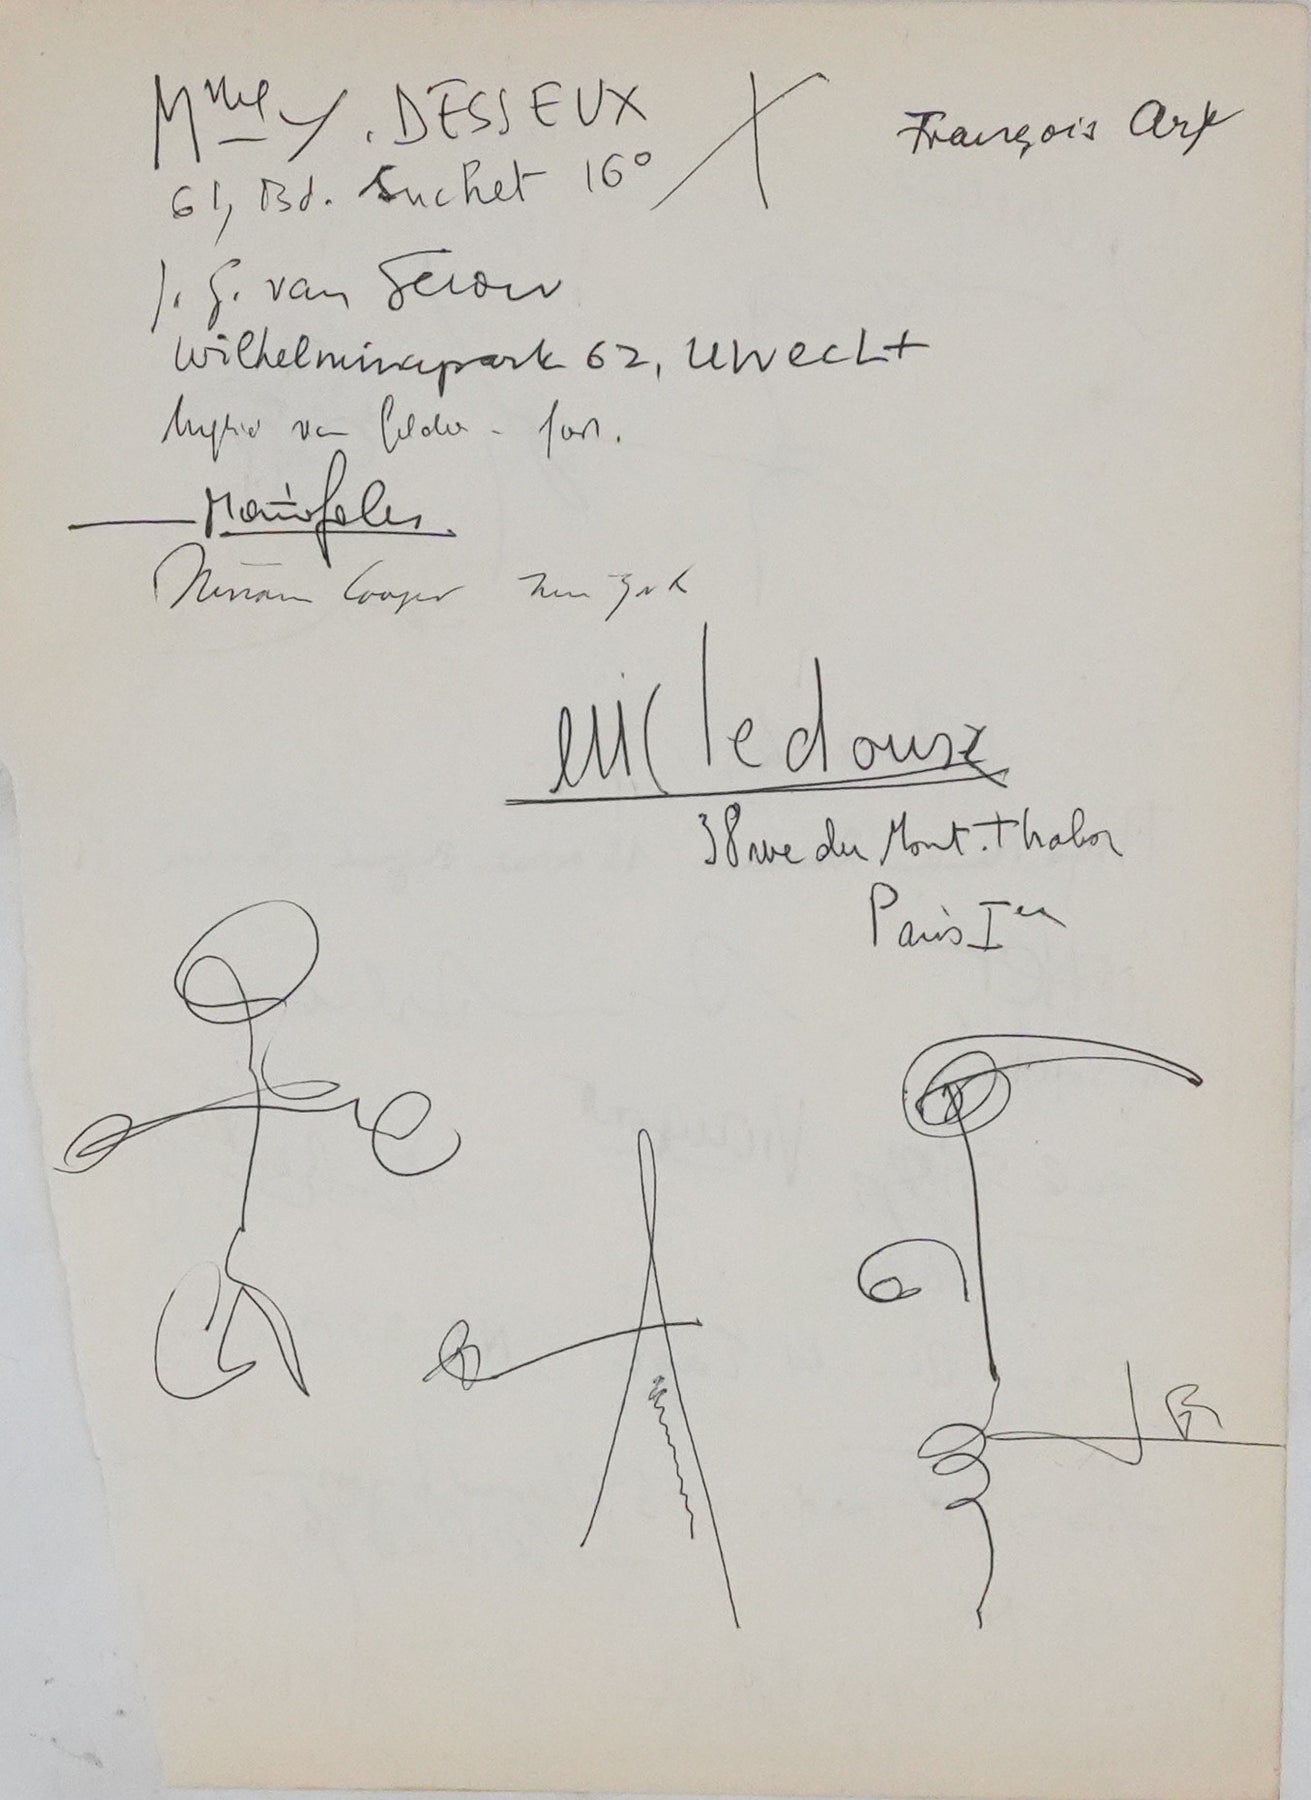 Mlle Y. DESSEUX
François Arp
61, Bd. Suchet 16°
J. G. van
Wilhelminapark 62, Utrecht
van Gelder -
Miriam Cooper New York
ledoux
38 rue du Mont-Thabor
Paris Ier